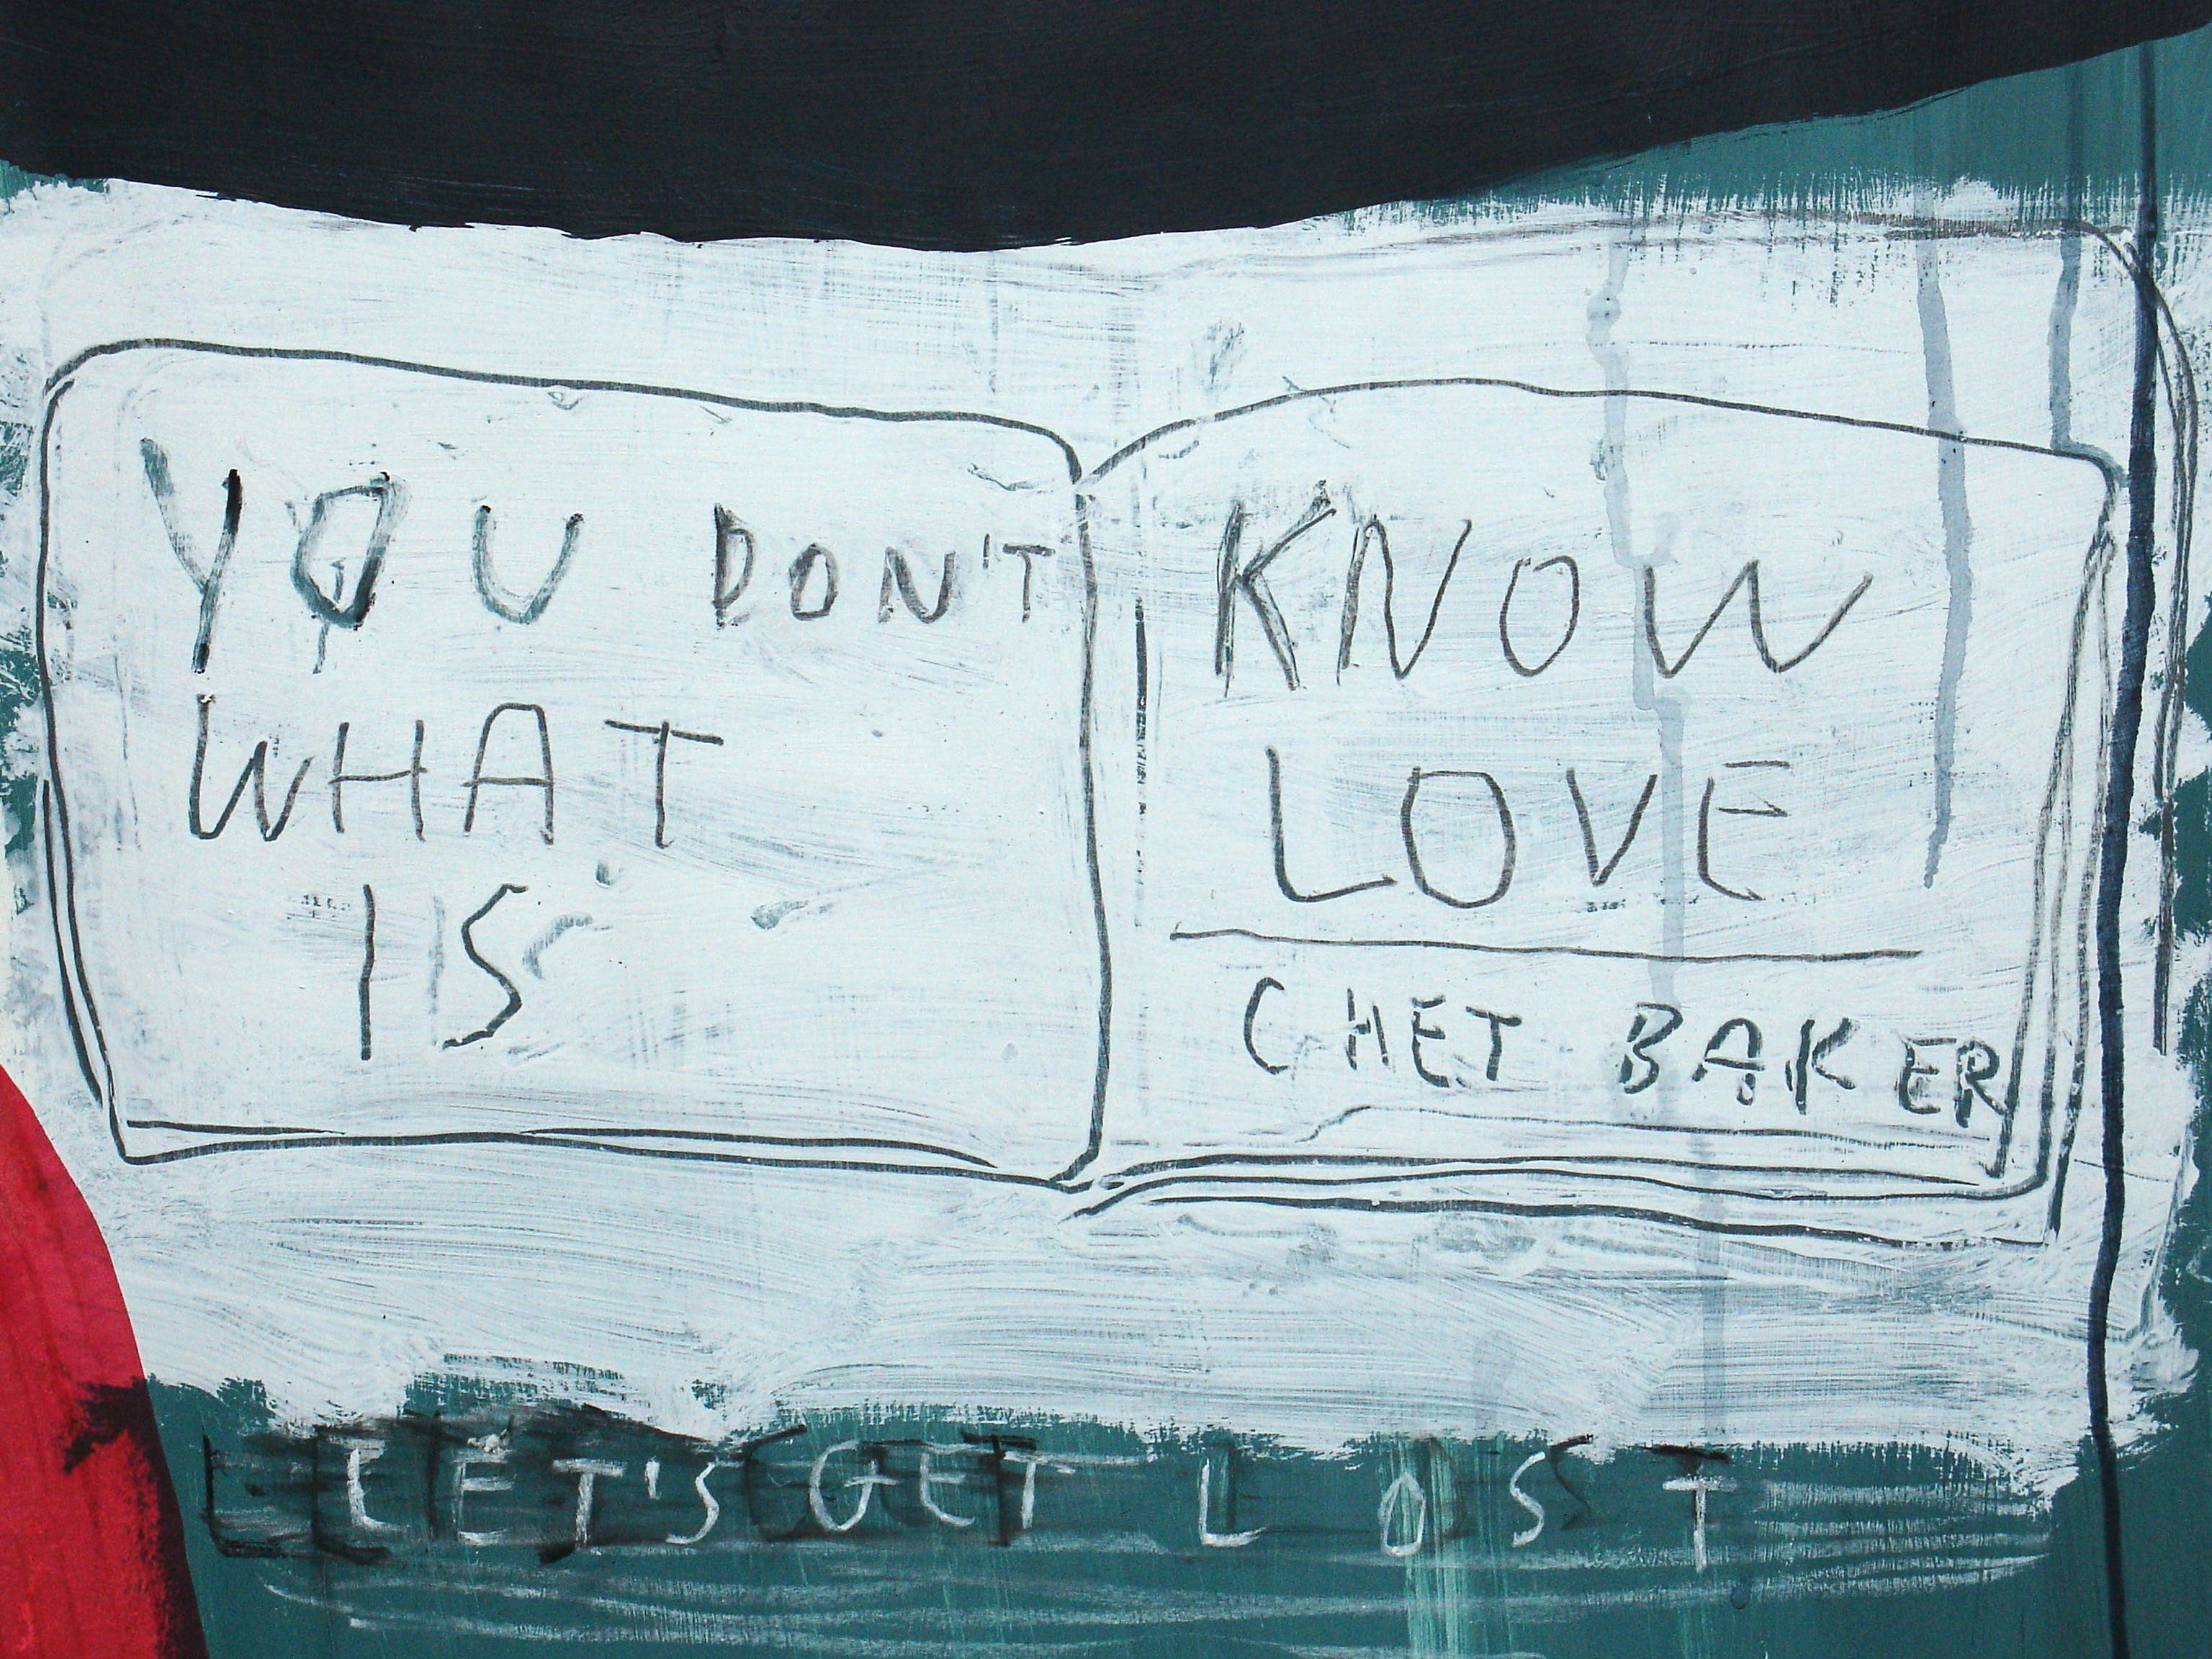 YOU DON'T
WHAT
IS
KNOW
LOVE
CHET BAKER
LET'S GET LOST